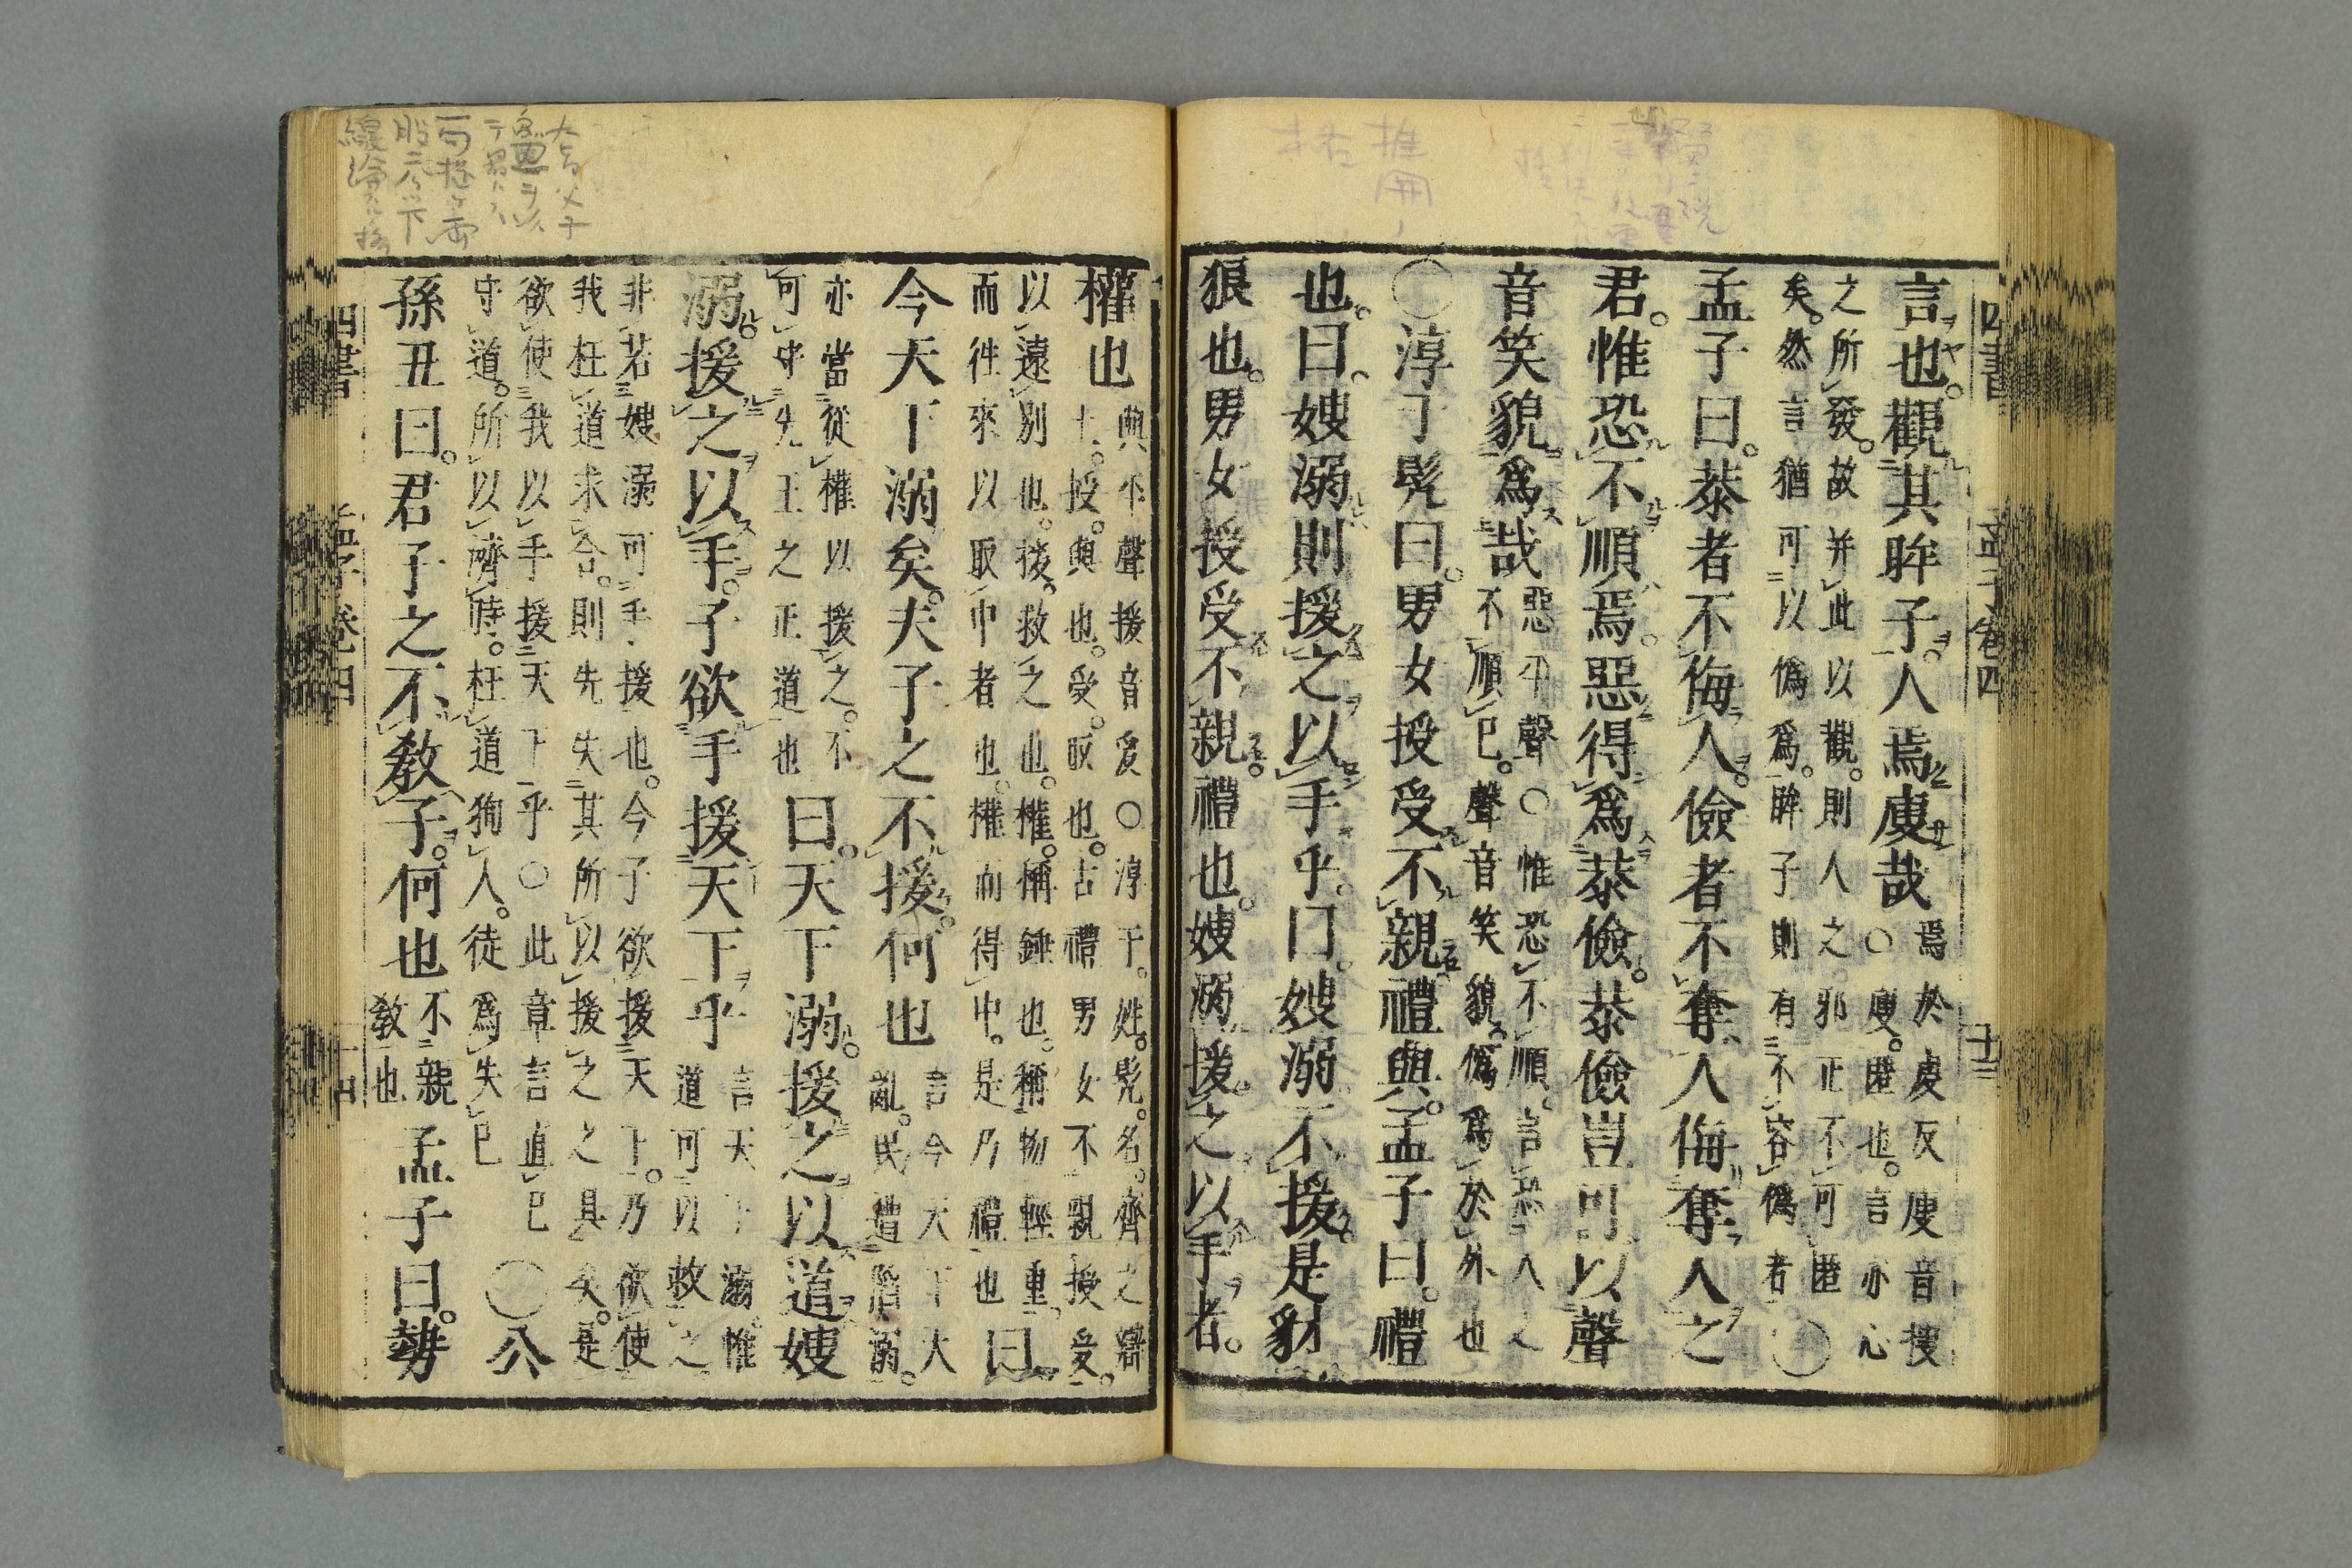 四書 孟子卷四 十三
言也。觀其眸子。人焉廋哉
焉於虔反廋音搜
○廋。匿也。言亦心
之所發。故并此以觀。則人之邪正不可匿
矣。然言猶可以僞爲。眸子則有不容僞者
○
孟子曰。恭者不侮人。儉者不奪人侮奪人之
君。惟恐不順焉。惡得爲恭儉。恭儉豈可以聲
音笑貌爲哉
惡平聲○惟恐不順。言恐人之
不順己。聲音笑貌。僞爲於外也
○淳于髡曰。男女授受不親禮與。孟子曰。禮
也。曰。嫂溺則援之以手乎。曰。嫂溺不援是豺
狼也。男女授受不親。禮也。嫂溺援之以手者。
權也
與平聲援音爰○淳于。姓。髡。名。齊之辯
士。授。與也。受。取也。古禮男女不親授受。
以遠別也。援。救之也。權。稱錘也。稱物輕重
而往來以取中者也。權而得中。是乃禮也
曰
今天下溺矣。夫子之不援。何也
言今天下大
亂。民遭陷溺。
亦當從權以援之。不
可守先王之正道也
曰。天下溺。援之以道嫂
溺。援之以手。子欲手援天下乎
言天下溺。惟
道可以救之
非若嫂溺可手援也。今子欲援天下。乃欲使
我枉道求合。則先失其所以援之之具矣。是
欲使我以手援天下乎○此章言直己
守道。所以濟時。枉道狥人。徒爲失己
○公
孫丑曰。君子之不敎子。何也
不親
敎也
孟子曰。勢
四書 孟子卷四 十四